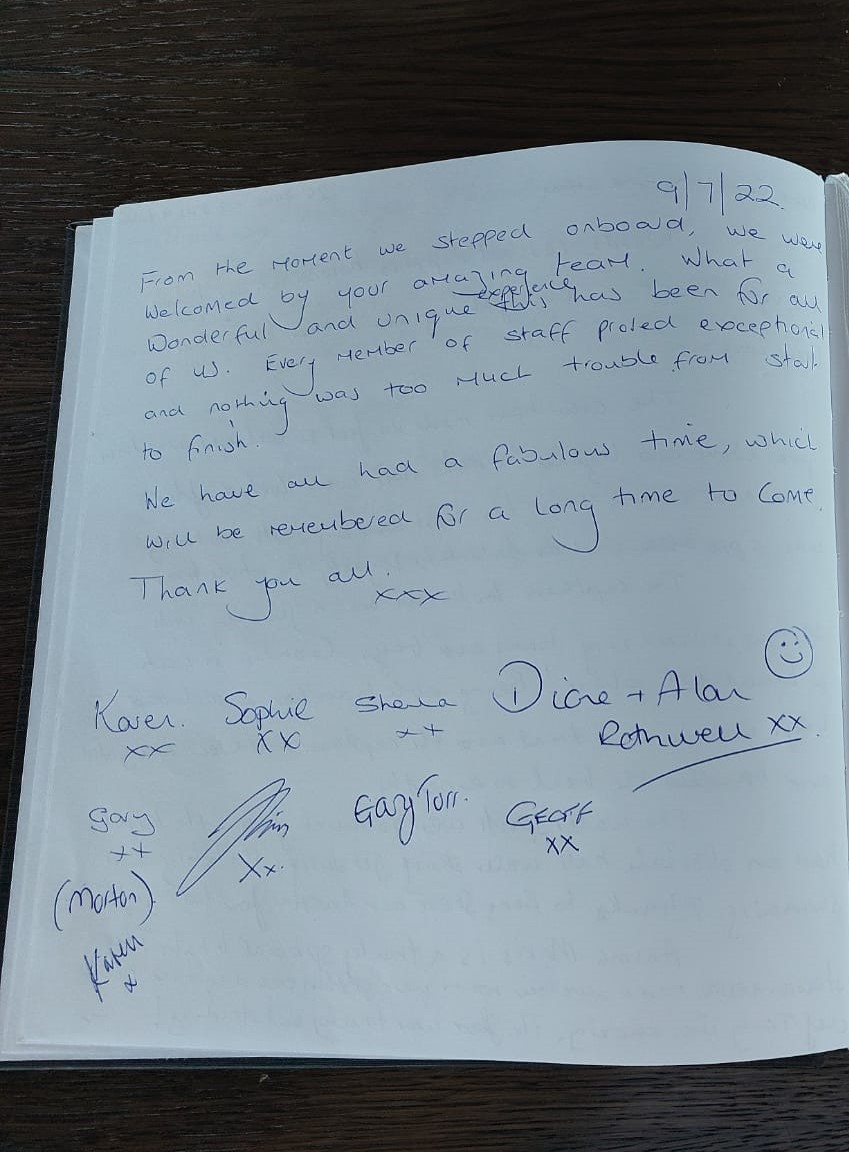 9/7/22.
From the moment we stepped onboard, we were
welcomed by your amazing team. What a
wonderful and unique experience this has been for all
of us. Every member of staff proled exceptional
and nothing was too much trouble from start
to finish.
We have all had a fabulous time, which
will be remembered for a long time to come.
Thank you all.
xxx
Karen. Sophie Sheila Diane + Alan
xx xx xx Rothwell xx.
Gary Jim Gary Torr. Geoff
xx xx. xx
(Morton)
Karen
x